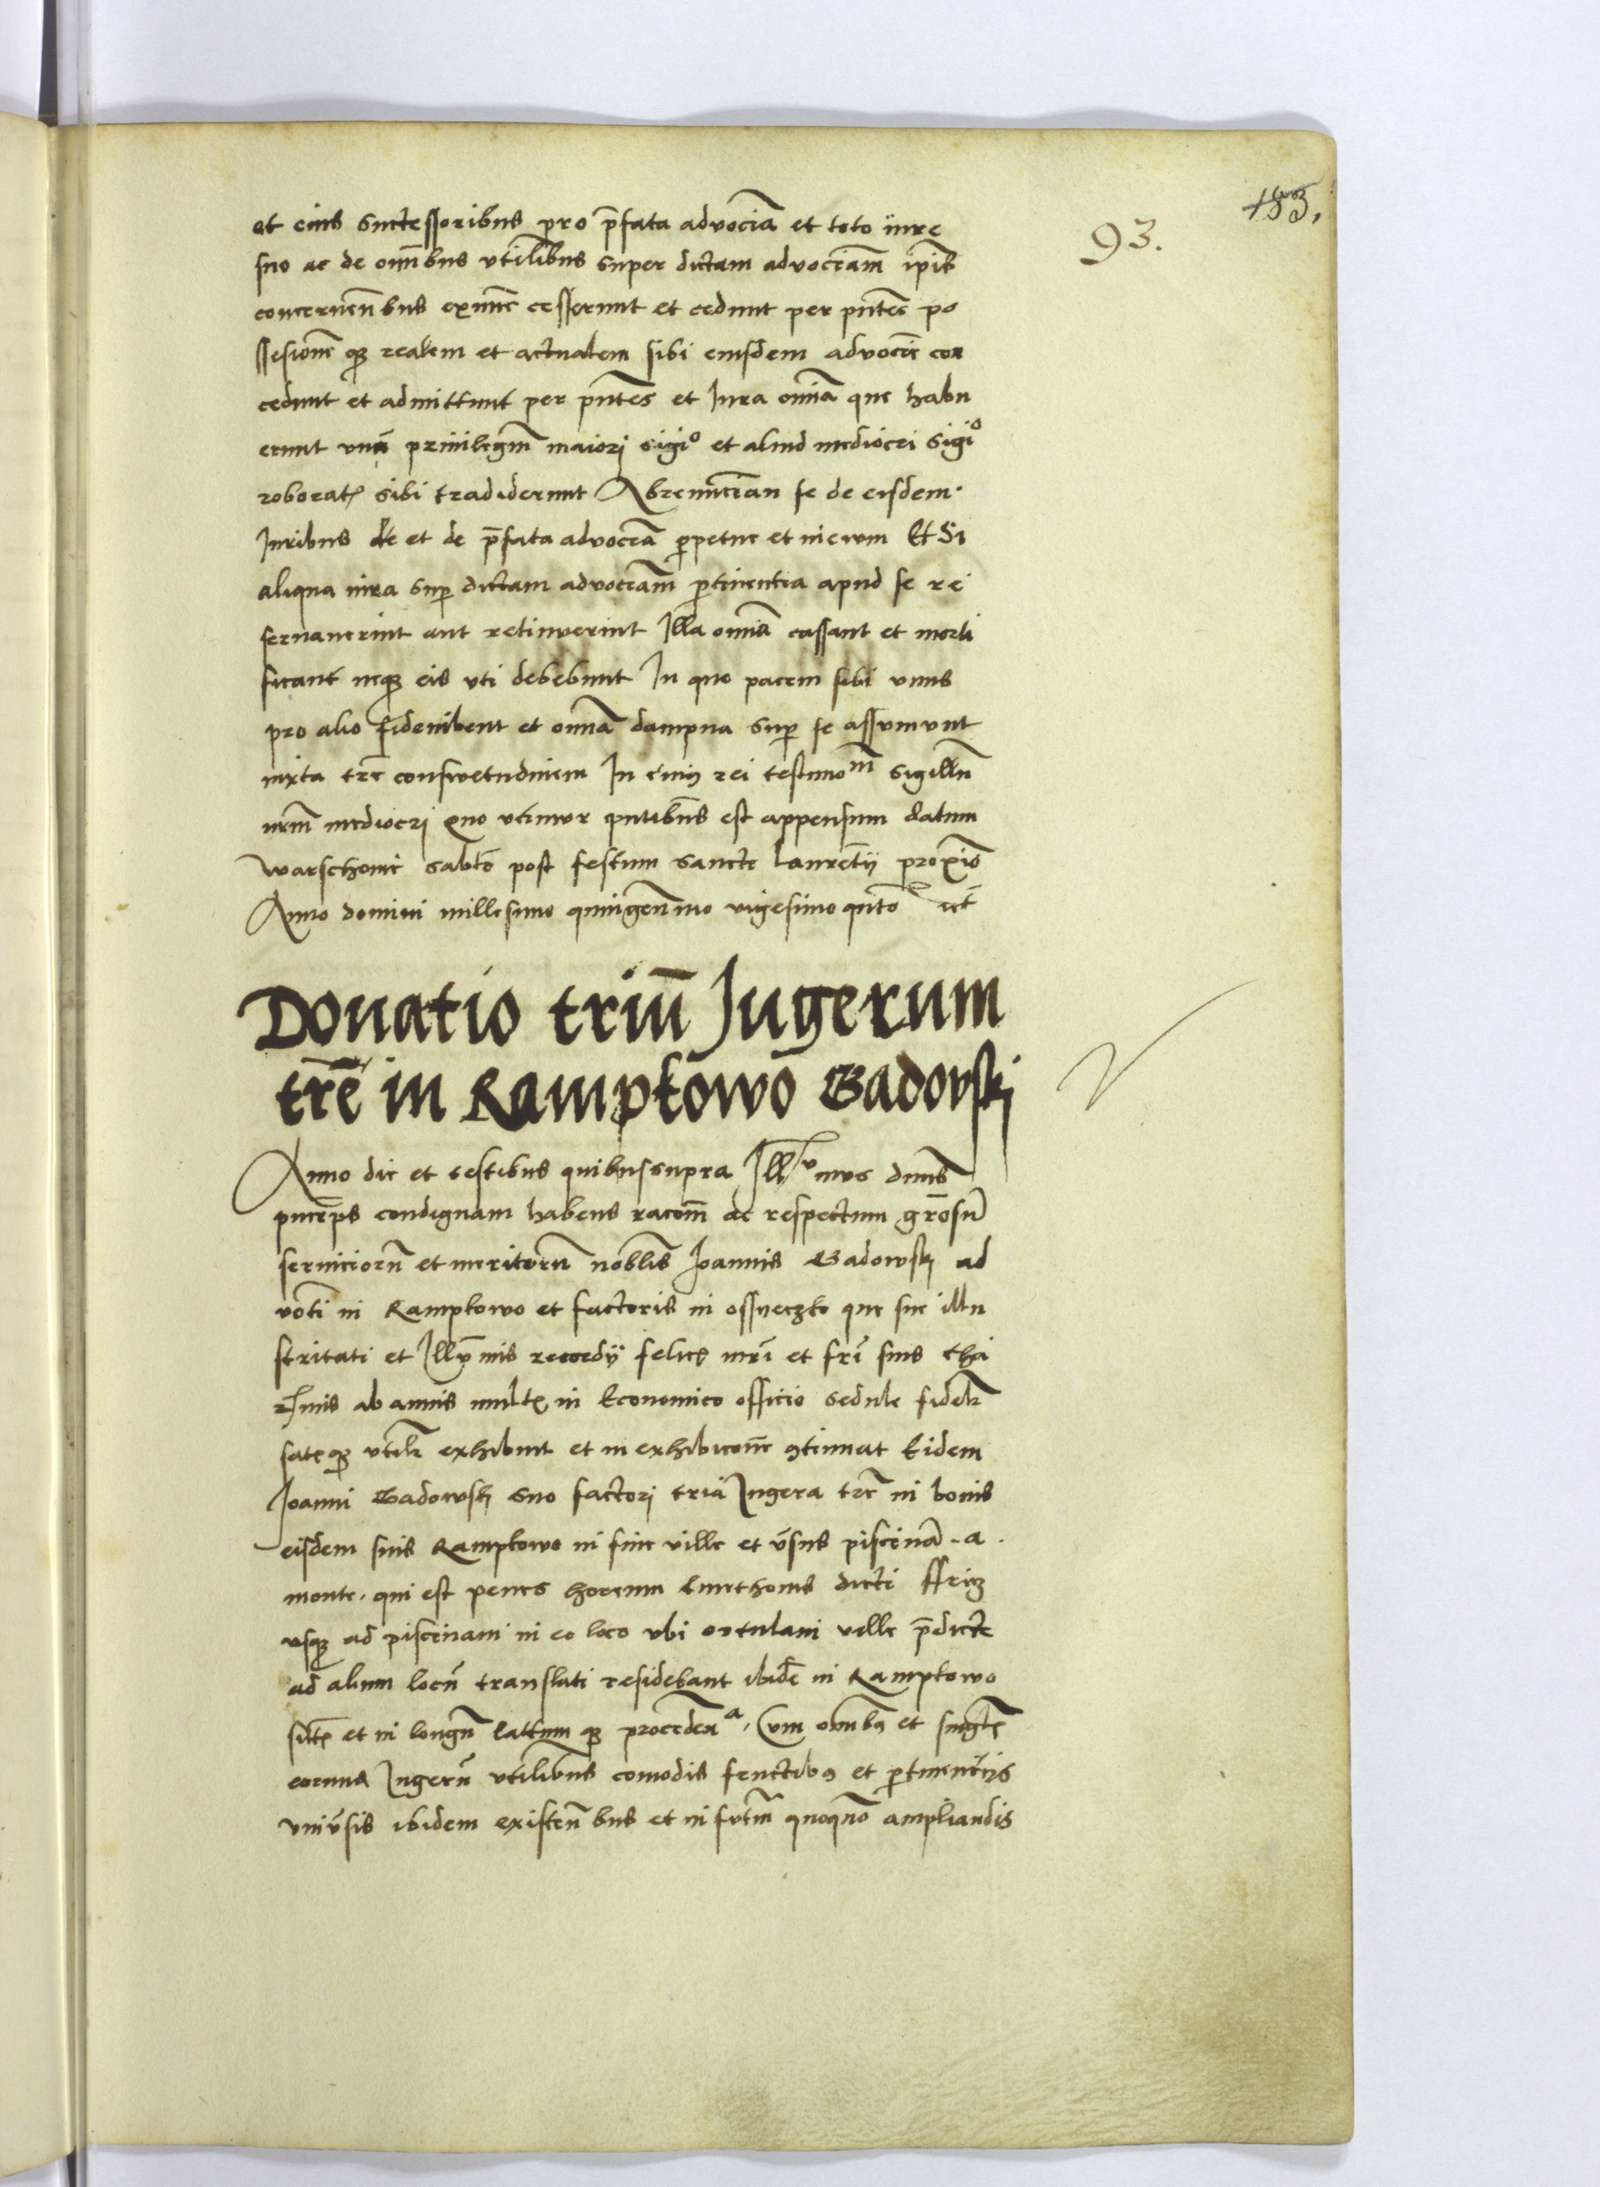 153.
93.
et eius successoribus pro p̄fata advocia͞ et toto iure
suo ac de om̄bus vtilibus super dictam advociam̄ ip̄is
concernen̄bus exnunc cesserunt et cedunt per pn̄tes po
ssesionē q3 realem et actualem sibi eiusdem advocie con
cedunt et admittunt per pn̄tes et Iura omīa que habu
erunt vnū priuilegiū maiori sigio et aliud mediocri sigio
roborat sibi tradiderunt Abrenuncian se de eisdem
Iuribus et de p̄fata advocia perpetue et in ewm Et Si
aliqua iura sup dictam advociam̄ pertinentia apud se re
seruauerint aut retinuerint Illa omīa cassant et morti
ficant neq3 eis vti debebunt In quo pacem sibi vnus
pro alio fideiubent et omīa dampna sup se assumunt
iuxta trē consuetudinem In cuius rei testimom̄ sigillū
nrm̄ mediocri quo vtimur pn̄tibus est appensum datum
warschouie sabto post festum sancte laurentij proximo
Anno domini millesimo quingen̄mo vigesimo qnto etc
Donatio triū Jugerum
trē in Ramptowo Gadovski
Anno die et testibus quibussupra Illrmus dn̄us
princeps condignam habens racom̄ ac respectum grosū
seruiciorū et meritorū noblis Joannis Gadowski ad
voti in Ramptowo et factoris in ossueczko que sue illu
stritati et Illrmis recordij felicis mri et fri suis cha
rissimis ab annis multis in Economico officio sedule fidelr
satisq3 vtilr exhibuit et in exhibicione continuat Eidem
Joanni Gadowski suo factori tria Jugera trē in bonis
eisdem suis Ramptowo in fine ville et v̄sus piscinā a
monte qui est penes horeum dicti
vsq3 ad piscinam in eo loco vbi ortulani ville p̄dicte
ad alium locū translati residebant ibidē in Ramptowo
sita et in longū latum q3 procedencia Cum om̄ibus et singulis
eorum Jugerū vtilibus comodis fructibus et pertinentijs
vniuersis ibidem existen̄bus et in futm̄ quoquo ampliandis